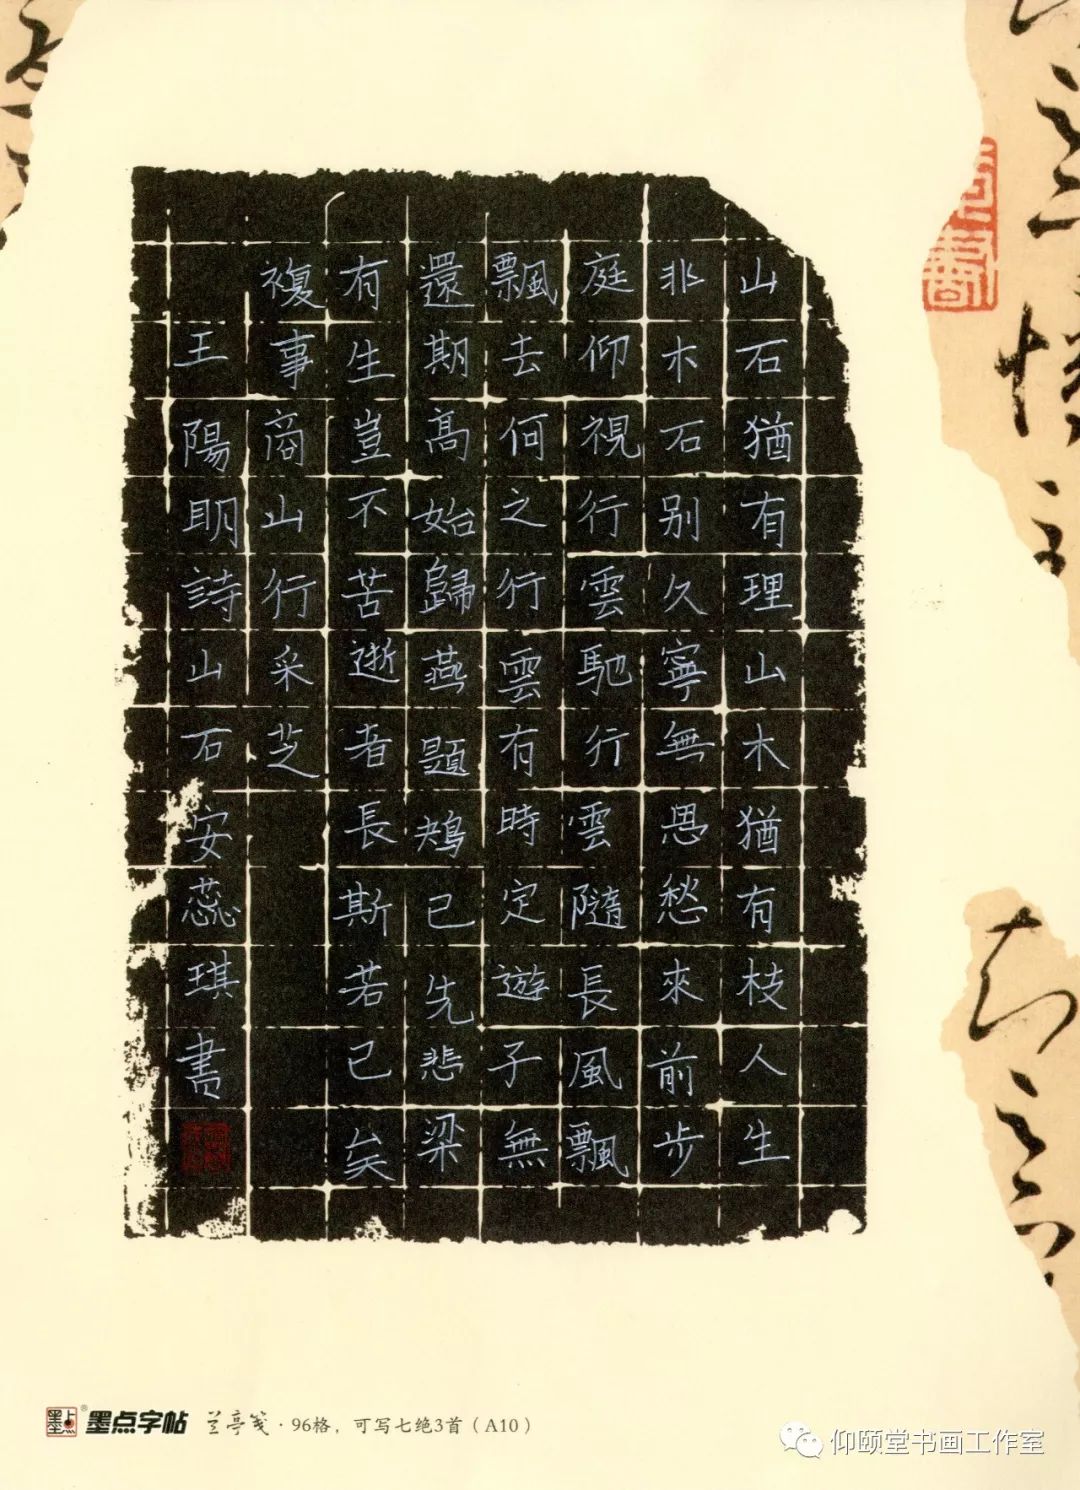 山石猶有理山木猶有枝人生
非木石别久寧無思愁來前步
庭仰視行雲馳行雲隨長風飄
飄去何之行雲有時定遊子無
還期高始歸燕題鴂已先悲梁
有生豈不苦逝者長斯若已矣
複事商山行采芝
王陽明詩山石安蕊琪書
墨点字帖 兰亭笺·96格，可写七绝3首（A10）
仰颐堂书画工作室